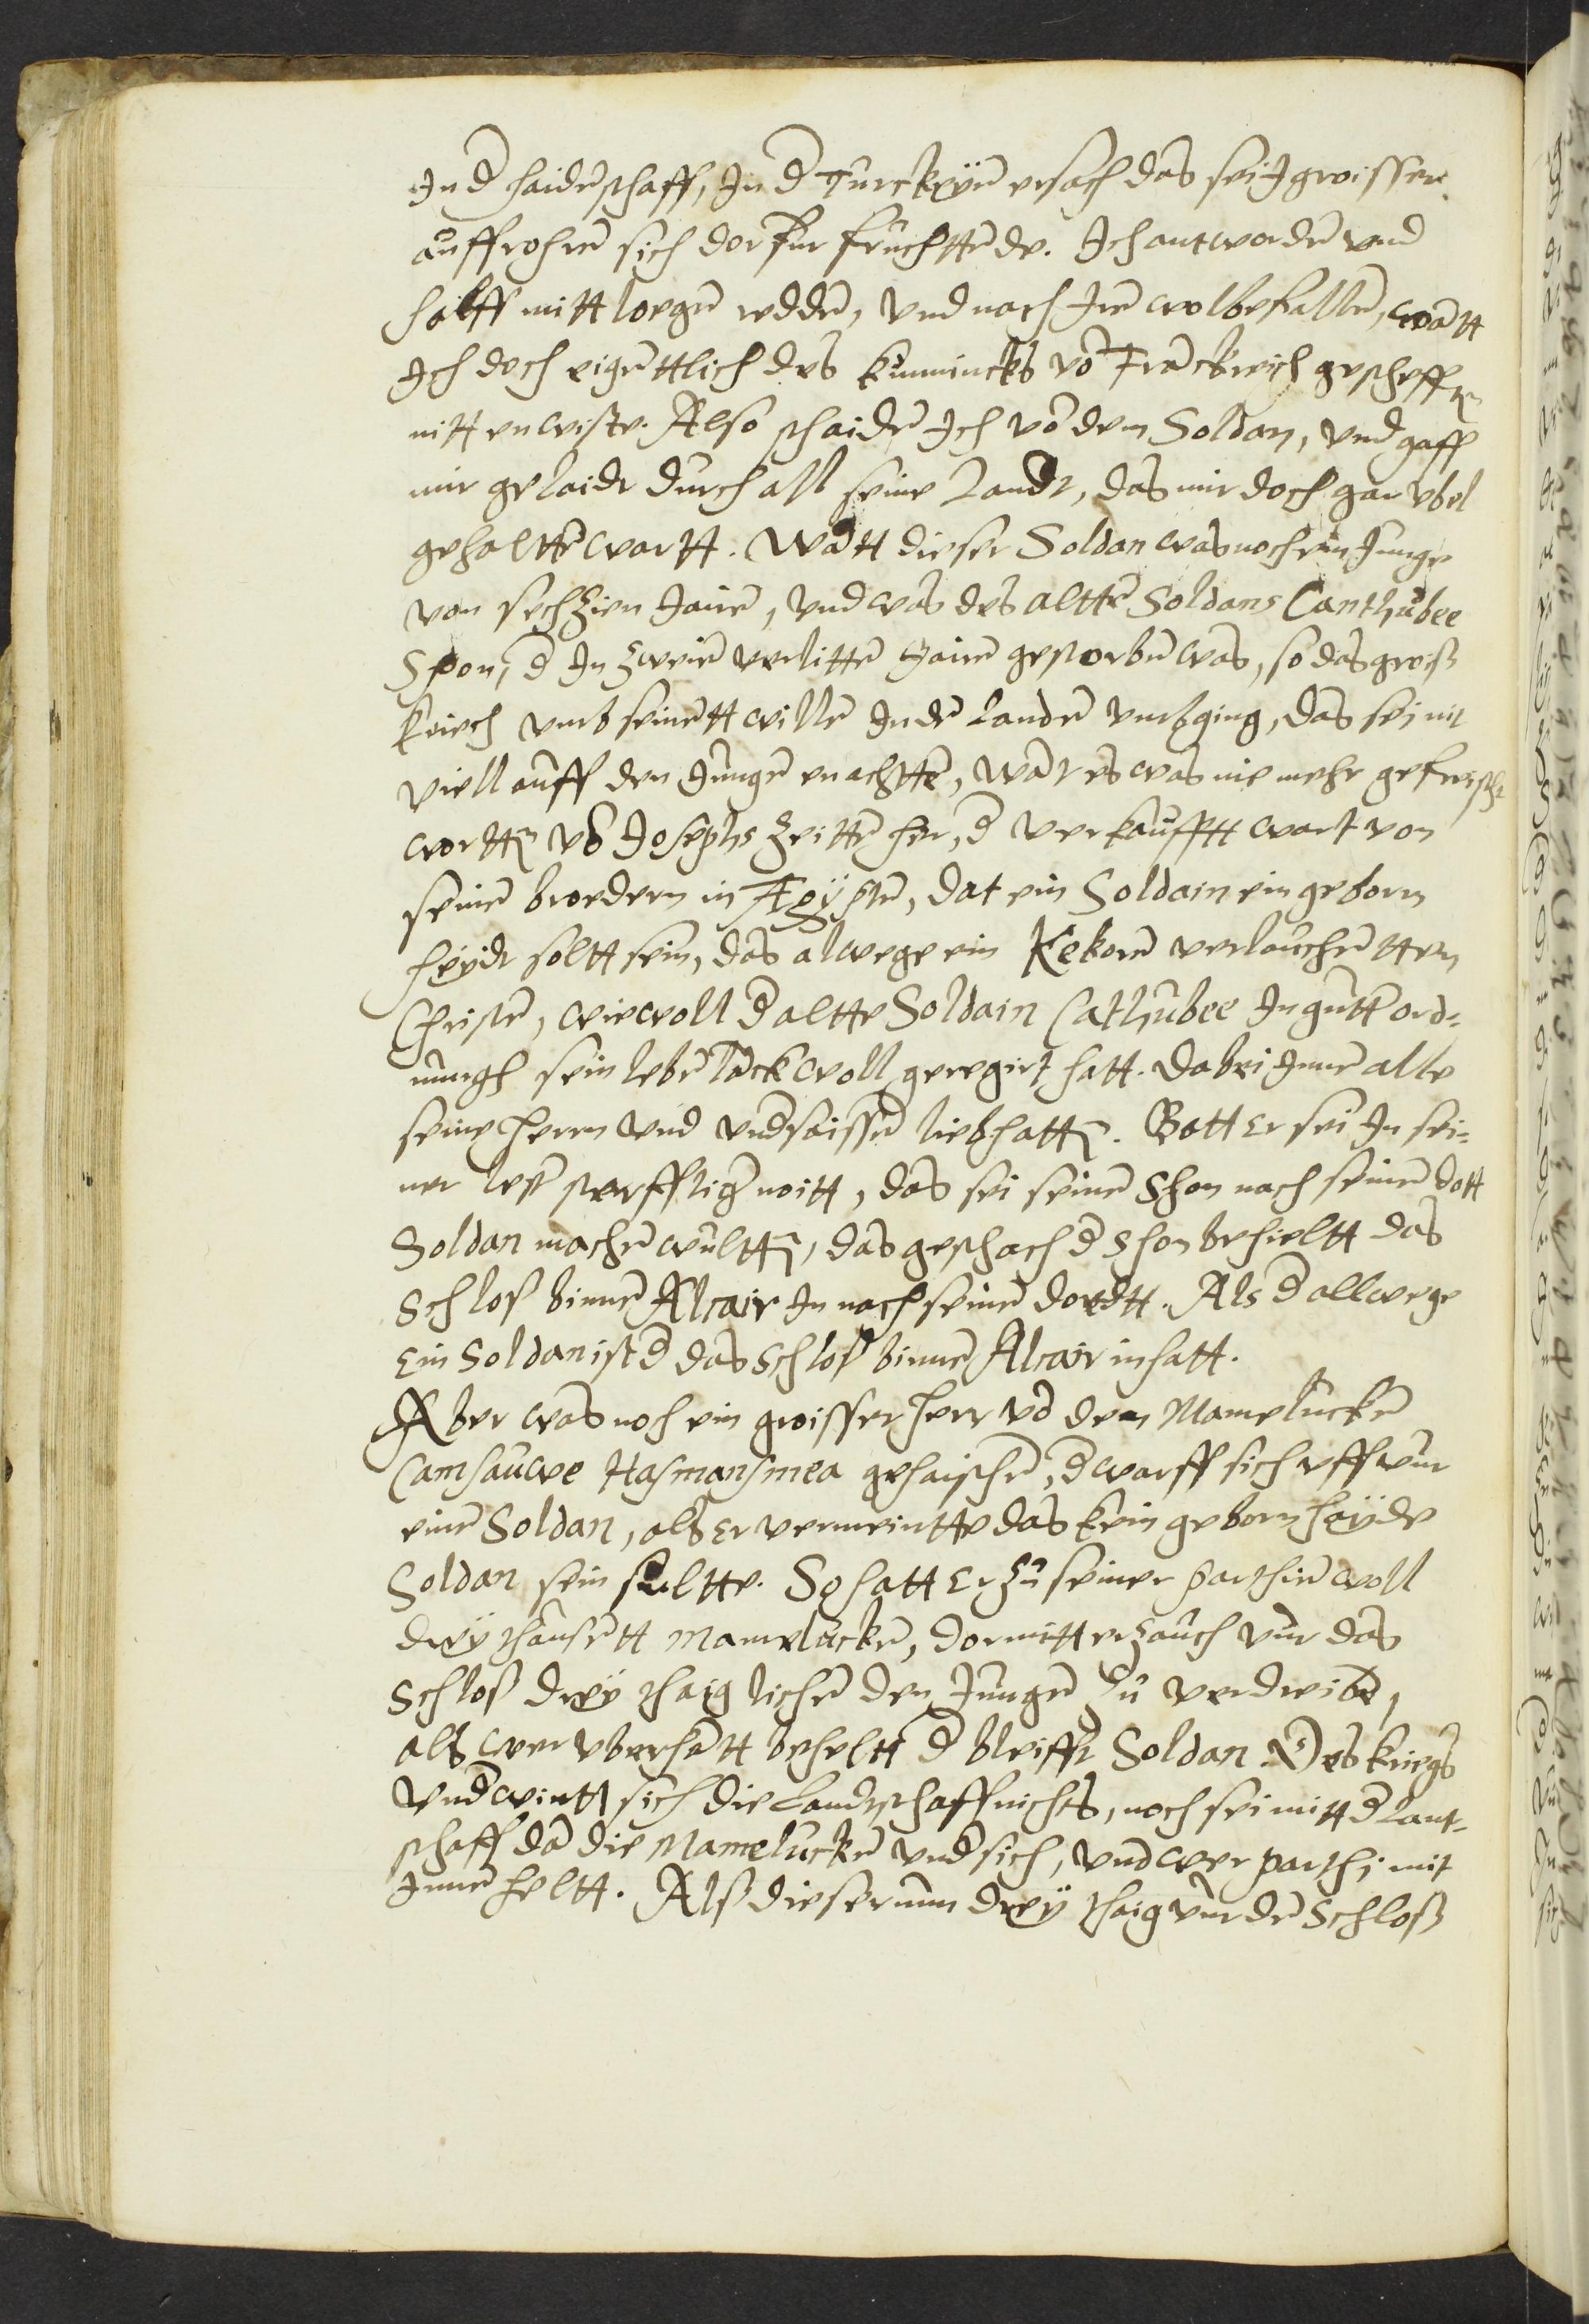 In d haideschaff, In d Turckÿe ersach das sei I groissen
auffrohre sich dorfur fruchttede. Ich antworde und
halff mitt loege redde, und nach Ire wolbefalle, watt
Ich doch eigettlich des kunnincks vo Franckreich gescheffte
nitt enwiste. Also schaide Ich vo dem Soldan, und gaff
mir gelaide durch all seine Landt, das mir doch gar ubel
gehaltte wartt. Watt dieser Soldan was noch ein Junge
von sechzien Jaire, und was des altte Soldans Canthubee
Shon, d In zweie verlitte Jaire gestorbe was, so das grois
kriech umb seinett wille In de Lande umbging, das sei nit
viell auff den Junge enachtte, wat es was nie mehr gefreischt
wortte vo Josephs zeitte her, d verkaufftt wart von
seine broedern in Ægÿpte, dat ein Soldain ein geborn
heÿdt soltt sein, das alwege ein Kekore verlauchettem
Christe, wiewoll d altte Soldain Cathubee In gutte ord=
nungh sein lebe lack woll geregirt hatt. Dabei Inne alle
seine Herrn und undsaisse lieb hatte. Batt Er sei In sei=
ner leste sterfflige noitt, das sei seine Shon nach seine dott
Soldan mache wultte, das geschach d Shon behieltt das
Schloß binne Alcair In nach seine doedtt. Als d allwege
Ein Soldan ist d das Schloß binne Alcair inhatt.
Aber was noch ein groisser Herr vo den Mamelucke
Camsauwe Hasmansmea gehaische, d warff sich uff vur
eine Soldan, als Er vermeintte das kein geborn heÿde
Soldan sein sultte. So hatt Er zu seiner parthie woll
dreÿ thausett Mamelucke, dormitt er zauch vur das
Schloß dreÿ thaig liche den Junge zu verdreibe,
als wer uberhatt beheltt d bleifft Soldan. Des kriegs
undwintt sich die Landtschaff nichts, noch sei mitt d Lant=
schaff da die Mamelucke und sich, und wer parthi mit
Inne heltt. Als dieser nun dreÿ thaig vur de Schloß